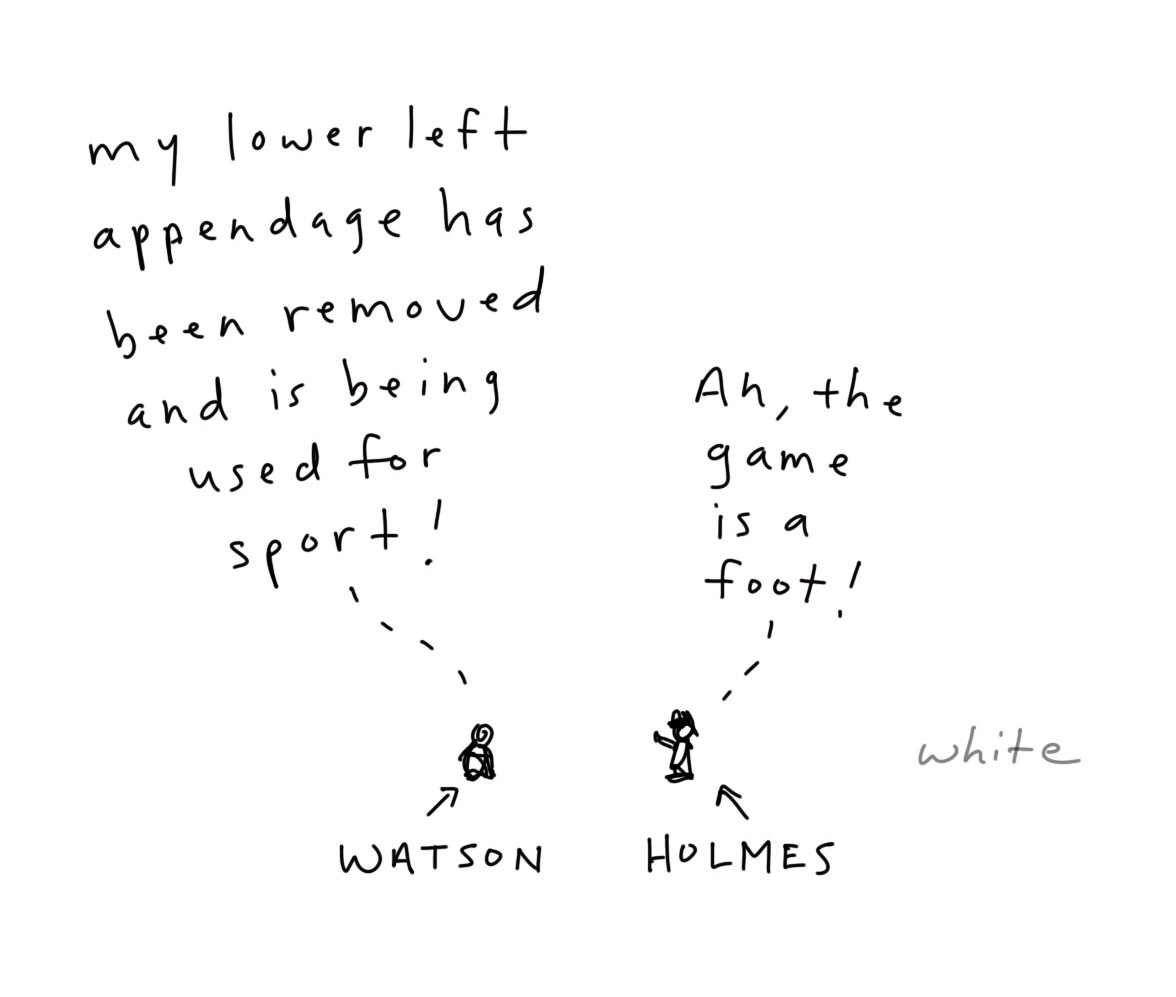 my lower left
appendage has
been removed
and is being
used for
sport!
Ah, the
game
is a
foot!
white
WATSON
HOLMES